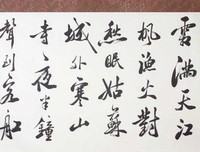 霜满天江
枫渔火對
愁眠姑蘇
城外寒山
寺夜半鐘
聲到客船